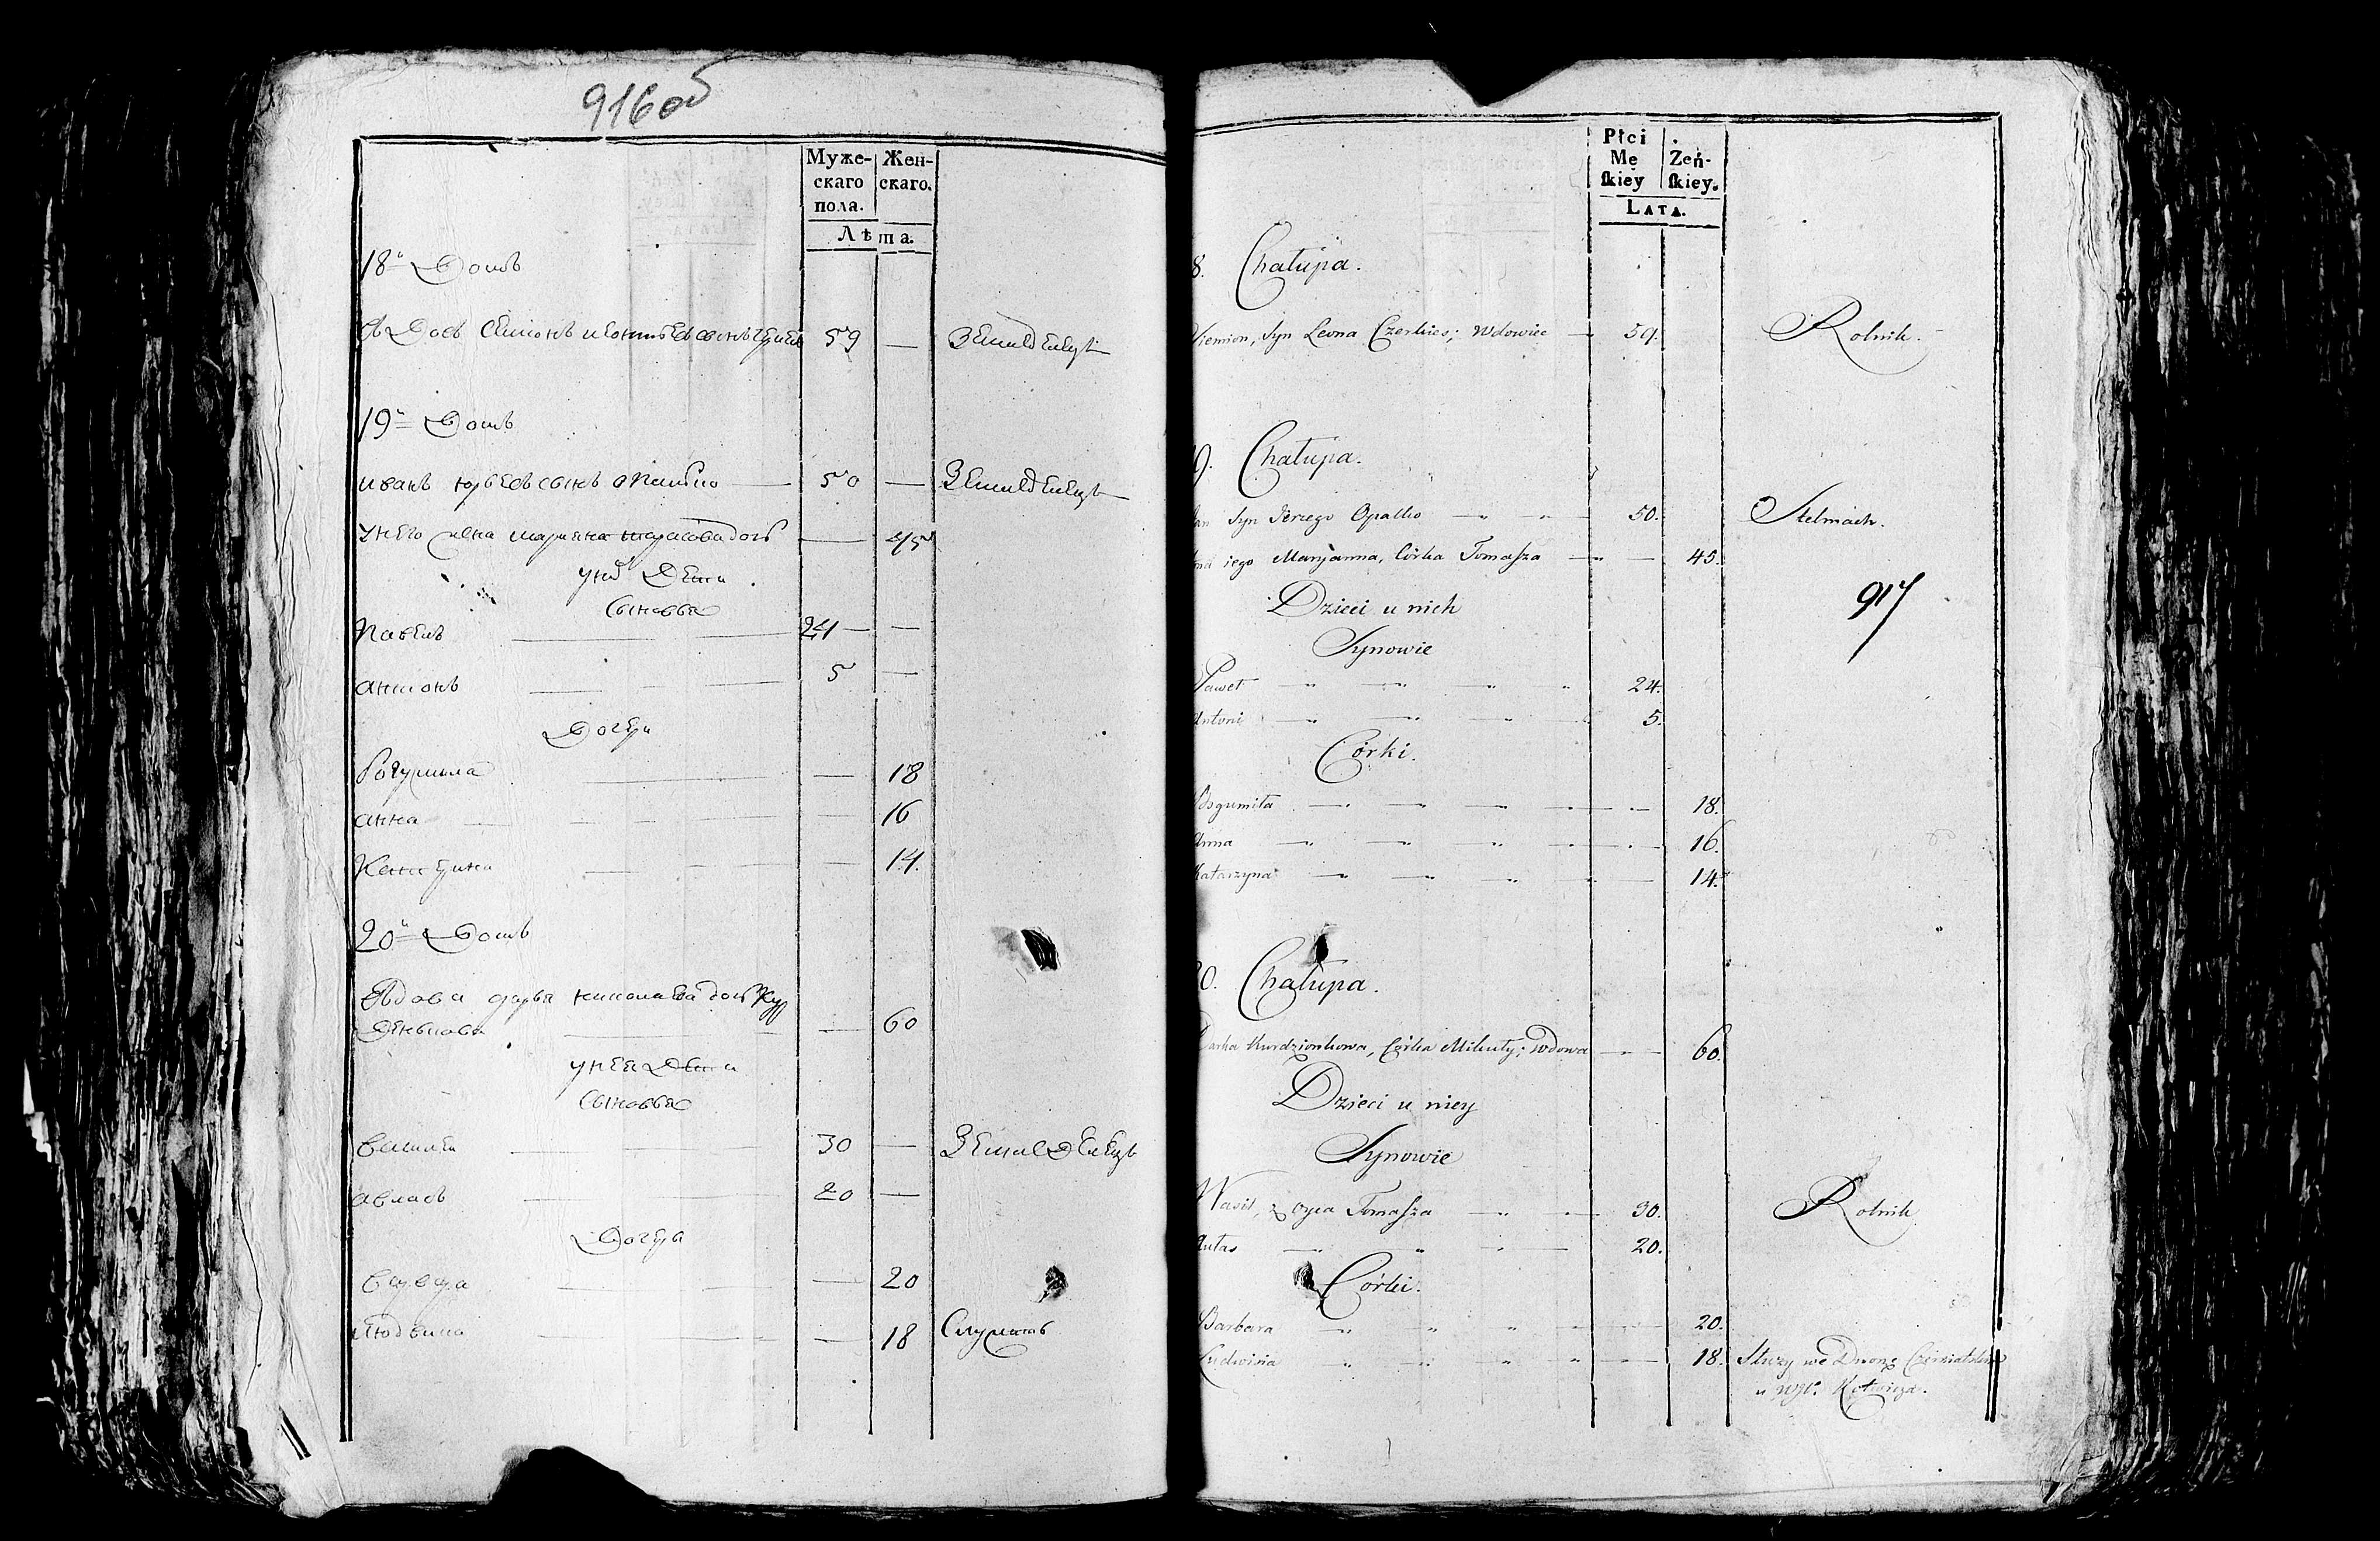 916 об
Муже- Жен-
скаго скаго.
пола.
Лѣта.
18й Домъ
Вдовъ Симонъ Леоновъ сынъ 59 — Земледелецъ
19й Домъ
Иванъ Юрьевъ сынъ Опалко — 50 — Земледелецъ
У него жена Марьяна дочь — 45
у нихъ Дети
Сыновья
Павелъ — 24 — —
Антонъ — 5 —
Дочери
Богумила — 18
Анна — 16
Катерина — 14.
20й Домъ
Вдова Дарья дочь Кур
дзенкова — 60
у нея Дети
Сыновья
Василей — 30 — Земледелецъ
Авласъ — 20 —
Дочери
Варвара — 20
Людвина — 18 Служитъ
Płci
Mę Żeń-
skiey skiey.
LATA.
8. Chałupa.
Siemion, Syn Leona Czerkies; Wdowiec — 59. Rolnik.
9. Chałupa.
Jan Syn Jerzego Opalko — 50. Stelmach.
Żona iego Maryanna, Córka Tomasza — 45.
Dzieci u nich
917
Synowie
Paweł — 24.
Antoni — 5.
Córki.
Bogumiła — 18.
Anna — 16.
Katarzyna — 14.
20. Chałupa.
Darka Kurdzionkowa, Córka Mikuty; Wdowa — 60.
Dzieci u niey
Synowie
Wasil, z oyca Tomasza — 30. Rolnik
Aułas — 20.
Córki.
Barbara — 20.
Ludwisia — 18. Służy we Dworze
u Kotwicza.